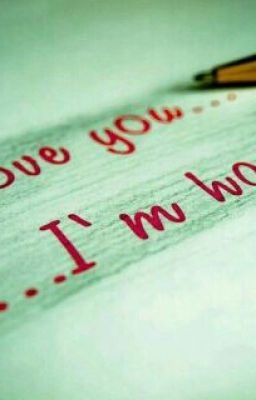 ove you...
...I`m wo